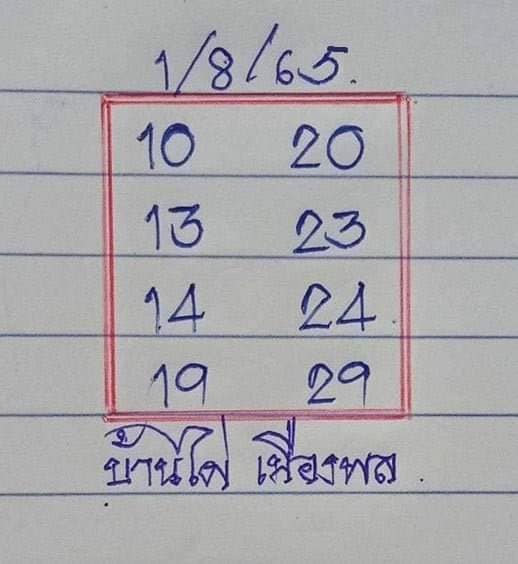 1/8/65.
10 20
13 23
14 24
19 29
บ้านไผ่ เมืองพล